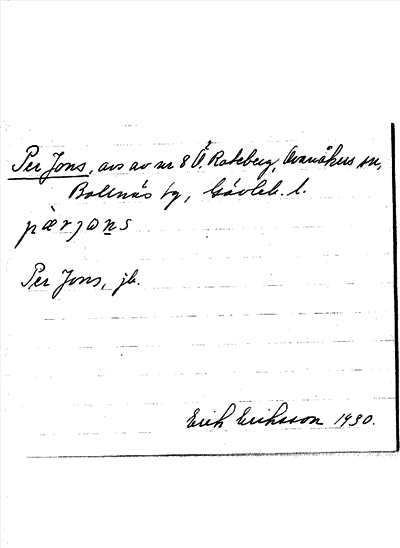 Per Jons, avs av nr 8 Ö. Roteberg, Ovanåkers sn,
Bollnäs tg, Gävleb. l.
pærjɷns
Per Jons, jb.
Erik Eriksson 1930.